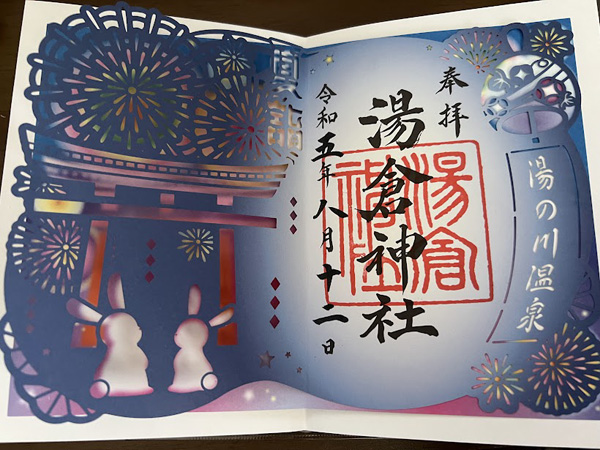 湯の川温泉
奉拝
湯倉神社
湯倉
神社
令和五年八月十二日
夏詣